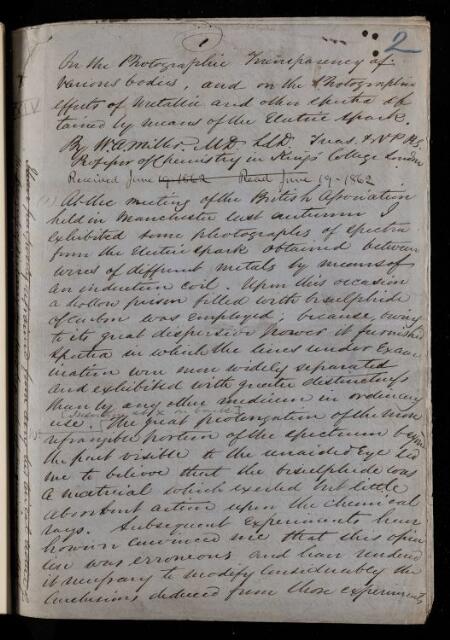 1
2
On the Photographic Transparency of
various bodies, and on the Photographic
effects of Metallic and other spectra ob
tained by means of the Electric Spark.
By W. A. Miller, M.D. LL.D. Treas. & V.P.R.S.
Professor of Chemistry in King's College London
Received June 19 - 1862 Read June 19 - 1862
(1) At the meeting of the British Association
held in Manchester last autumn I
exhibited some photographs of spectra
from the Electric spark obtained between
wires of different metals by means of
an induction coil. Upon this occasion
a hollow prism filled with bisulphide
of carbon was employed; because, owing
to its great dispersive power it furnished
spectra in which the lines under exam
ination were more widely separated
and exhibited with greater distinctness
than by any other medium in ordinary
use. The great prolongation of the more
refrangible portion of the spectrum beyond
the part visible to the unaided Eye led
me to believe that the bisulphide was
a material which exerted but little
absorbent action upon the chemical
rays. Subsequent experiments have
however convinced me that this opin
ion was erroneous and have rendered
it necessary to modify considerably the
conclusions deduced from those experiments